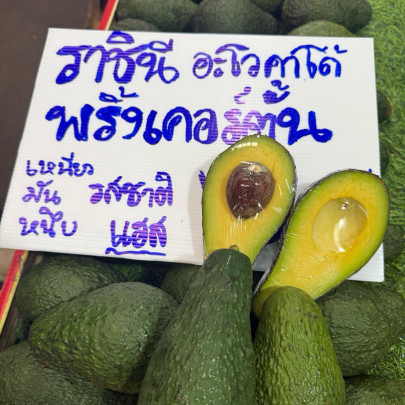 ราชินี อะโวคาโด้
พริ้งเคอร์ตั้น
เหนียว
มัน รสชาติ
หนึบ แฮส